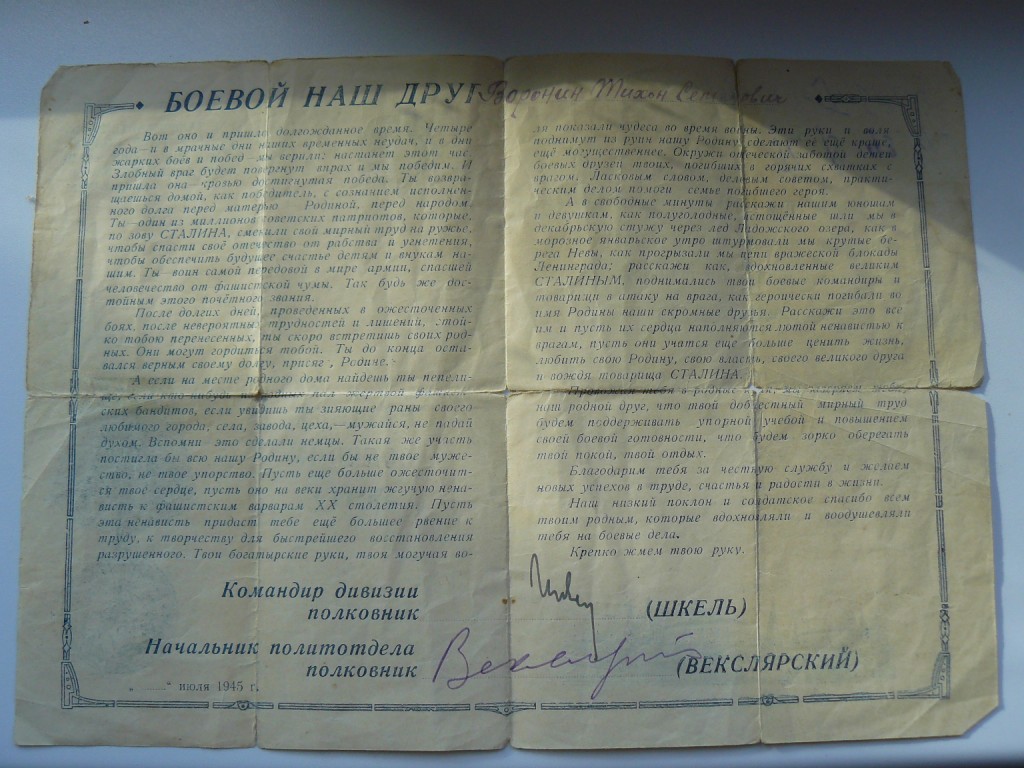 БОЕВОЙ НАШ ДРУГ Воронин Тихон
Вот оно и пришло долгожданное время. Четыре
года—и в мрачные дни наших временных неудач, и в дни
жарких боев и побед—мы верили: настанет этот час.
Злобный враг будет повергнут в прах и мы победим. И
пришла она—кровью достигнутая победа. Ты возвра-
щаешься домой, как победитель, с сознанием исполнен-
ного долга перед матерью Родиной, перед народом.
Ты—один из миллионов советских патриотов, которые,
по зову СТАЛИНА, сменили свой мирный труд на ружье,
чтобы спасти своё отечество от рабства и угнетения,
чтобы обеспечить будущее счастье детям и внукам на-
шим. Ты—воин самой передовой в мире армии, спасшей
человечество от фашистской чумы. Так будь же дос-
тойным этого почётного звания.
После долгих дней, проведенных в ожесточенных
боях, после невероятных трудностей и лишений, стой-
ко тобою перенесенных, ты скоро встретишь своих род-
ных. Они могут гордиться тобой. Ты до конца оста-
вался верным своему долгу, присяге, Родине.
А если на месте родного дома найдешь ты пепели-
ще, если кто нибудь из родных пал жертвой фашист-
ских бандитов, если увидишь ты зияющие раны своего
любимого города, села, завода, цеха,—мужайся, не падай
духом. Вспомни—это сделали немцы. Такая же участь
постигла бы всю нашу Родину, если бы не твое муже-
ство, не твое упорство. Пусть еще больше ожесточит-
ся твое сердце, пусть оно на веки хранит жгучую нена-
висть к фашистским варварам XX столетия. Пусть
эта ненависть придаст тебе ещё большее рвение к
труду, к творчеству для быстрейшего восстановления
разрушенного. Твои богатырские руки, твоя могучая во-
ля показали чудеса во время войны. Эти руки и воля
поднимут из руин нашу Родину, сделают её ещё краше,
ещё могущественнее. Окружи отеческой заботой детей
боевых друзей твоих, погибших в горячих схватках с
врагом. Ласковым словом, деловым советом, практи-
ческим делом помоги семье погибшего героя.
А в свободные минуты расскажи нашим юношам
и девушкам, как полуголодные, истощённые шли мы в
декабрьскую стужу через лед Ладожского озера, как в
морозное январьское утро штурмовали мы крутые бе-
рега Невы, как прогрызали мы цепи вражеской блокады
Ленинграда; расскажи как, вдохновленные великим
СТАЛИНЫМ, поднимались твои боевые командиры и
товарищи в атаку на врага, как героически погибали во
имя Родины наши скромные друзья. Расскажи это все
им и пусть их сердца наполняются лютой ненавистью к
врагам, пусть они учатся еще больше ценить жизнь,
любить свою Родину, свою власть, своего великого друга
и вождя товарища СТАЛИНА.
Провожая тебя в родные края, мы заверяем тебя,
наш родной друг, что твой доблестный мирный труд
будем поддерживать упорной учебой и повышением
своей боевой готовности, что будем зорко оберегать
твой покой, твой отдых.
Благодарим тебя за честную службу и желаем
новых успехов в труде, счастья и радости в жизни.
Наш низкий поклон и солдатское спасибо всем
твоим родным, которые вдохновляли и воодушевляли
тебя на боевые дела.
Крепко жмем твою руку.
Командир дивизии
полковник (ШКЕЛЬ)
Начальник политотдела
полковник (ВЕКСЛЯРСКИЙ)
„ — “ июля 1945 г.